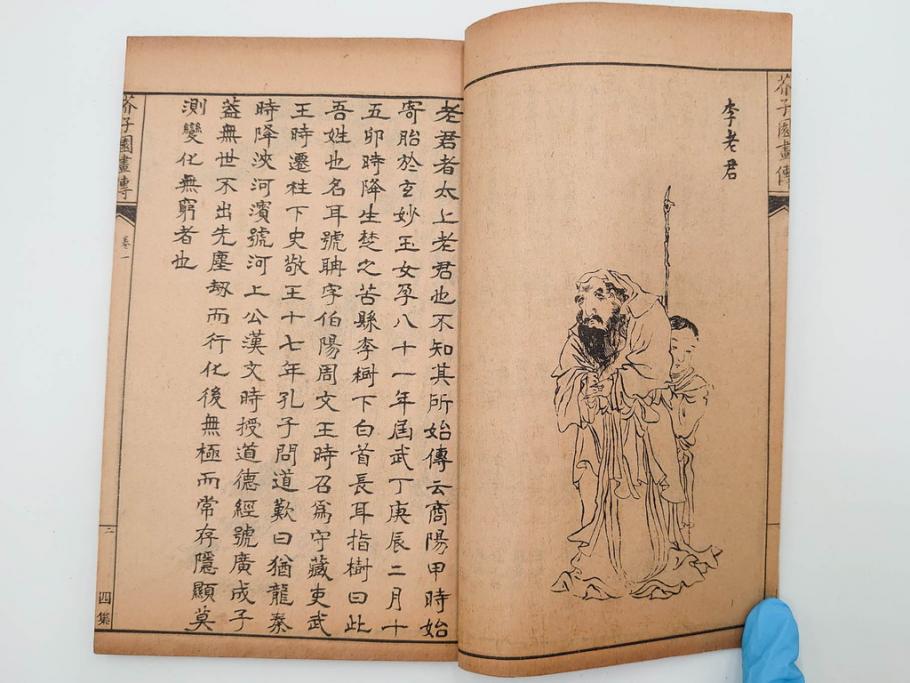 芥子園畫傳
李老君
老君者太上老君也不知其所始傳云商陽甲時始
寄胎於玄妙玉女孕八十一年屆武丁庚辰二月十
五卯時降生楚之苦縣李樹下白首長耳指樹曰此
吾姓也名耳號聃字伯陽周文王時召爲守藏吏武
王時遷柱下史敬王十七年孔子問道歎曰猶龍秦
時降浹河濱號河上公漢文時授道德經號廣成子
蓋無世不出先塵劫而行化後無極而常存隱顯莫
測變化無窮者也
芥子園畫傳
卷一
二
四集